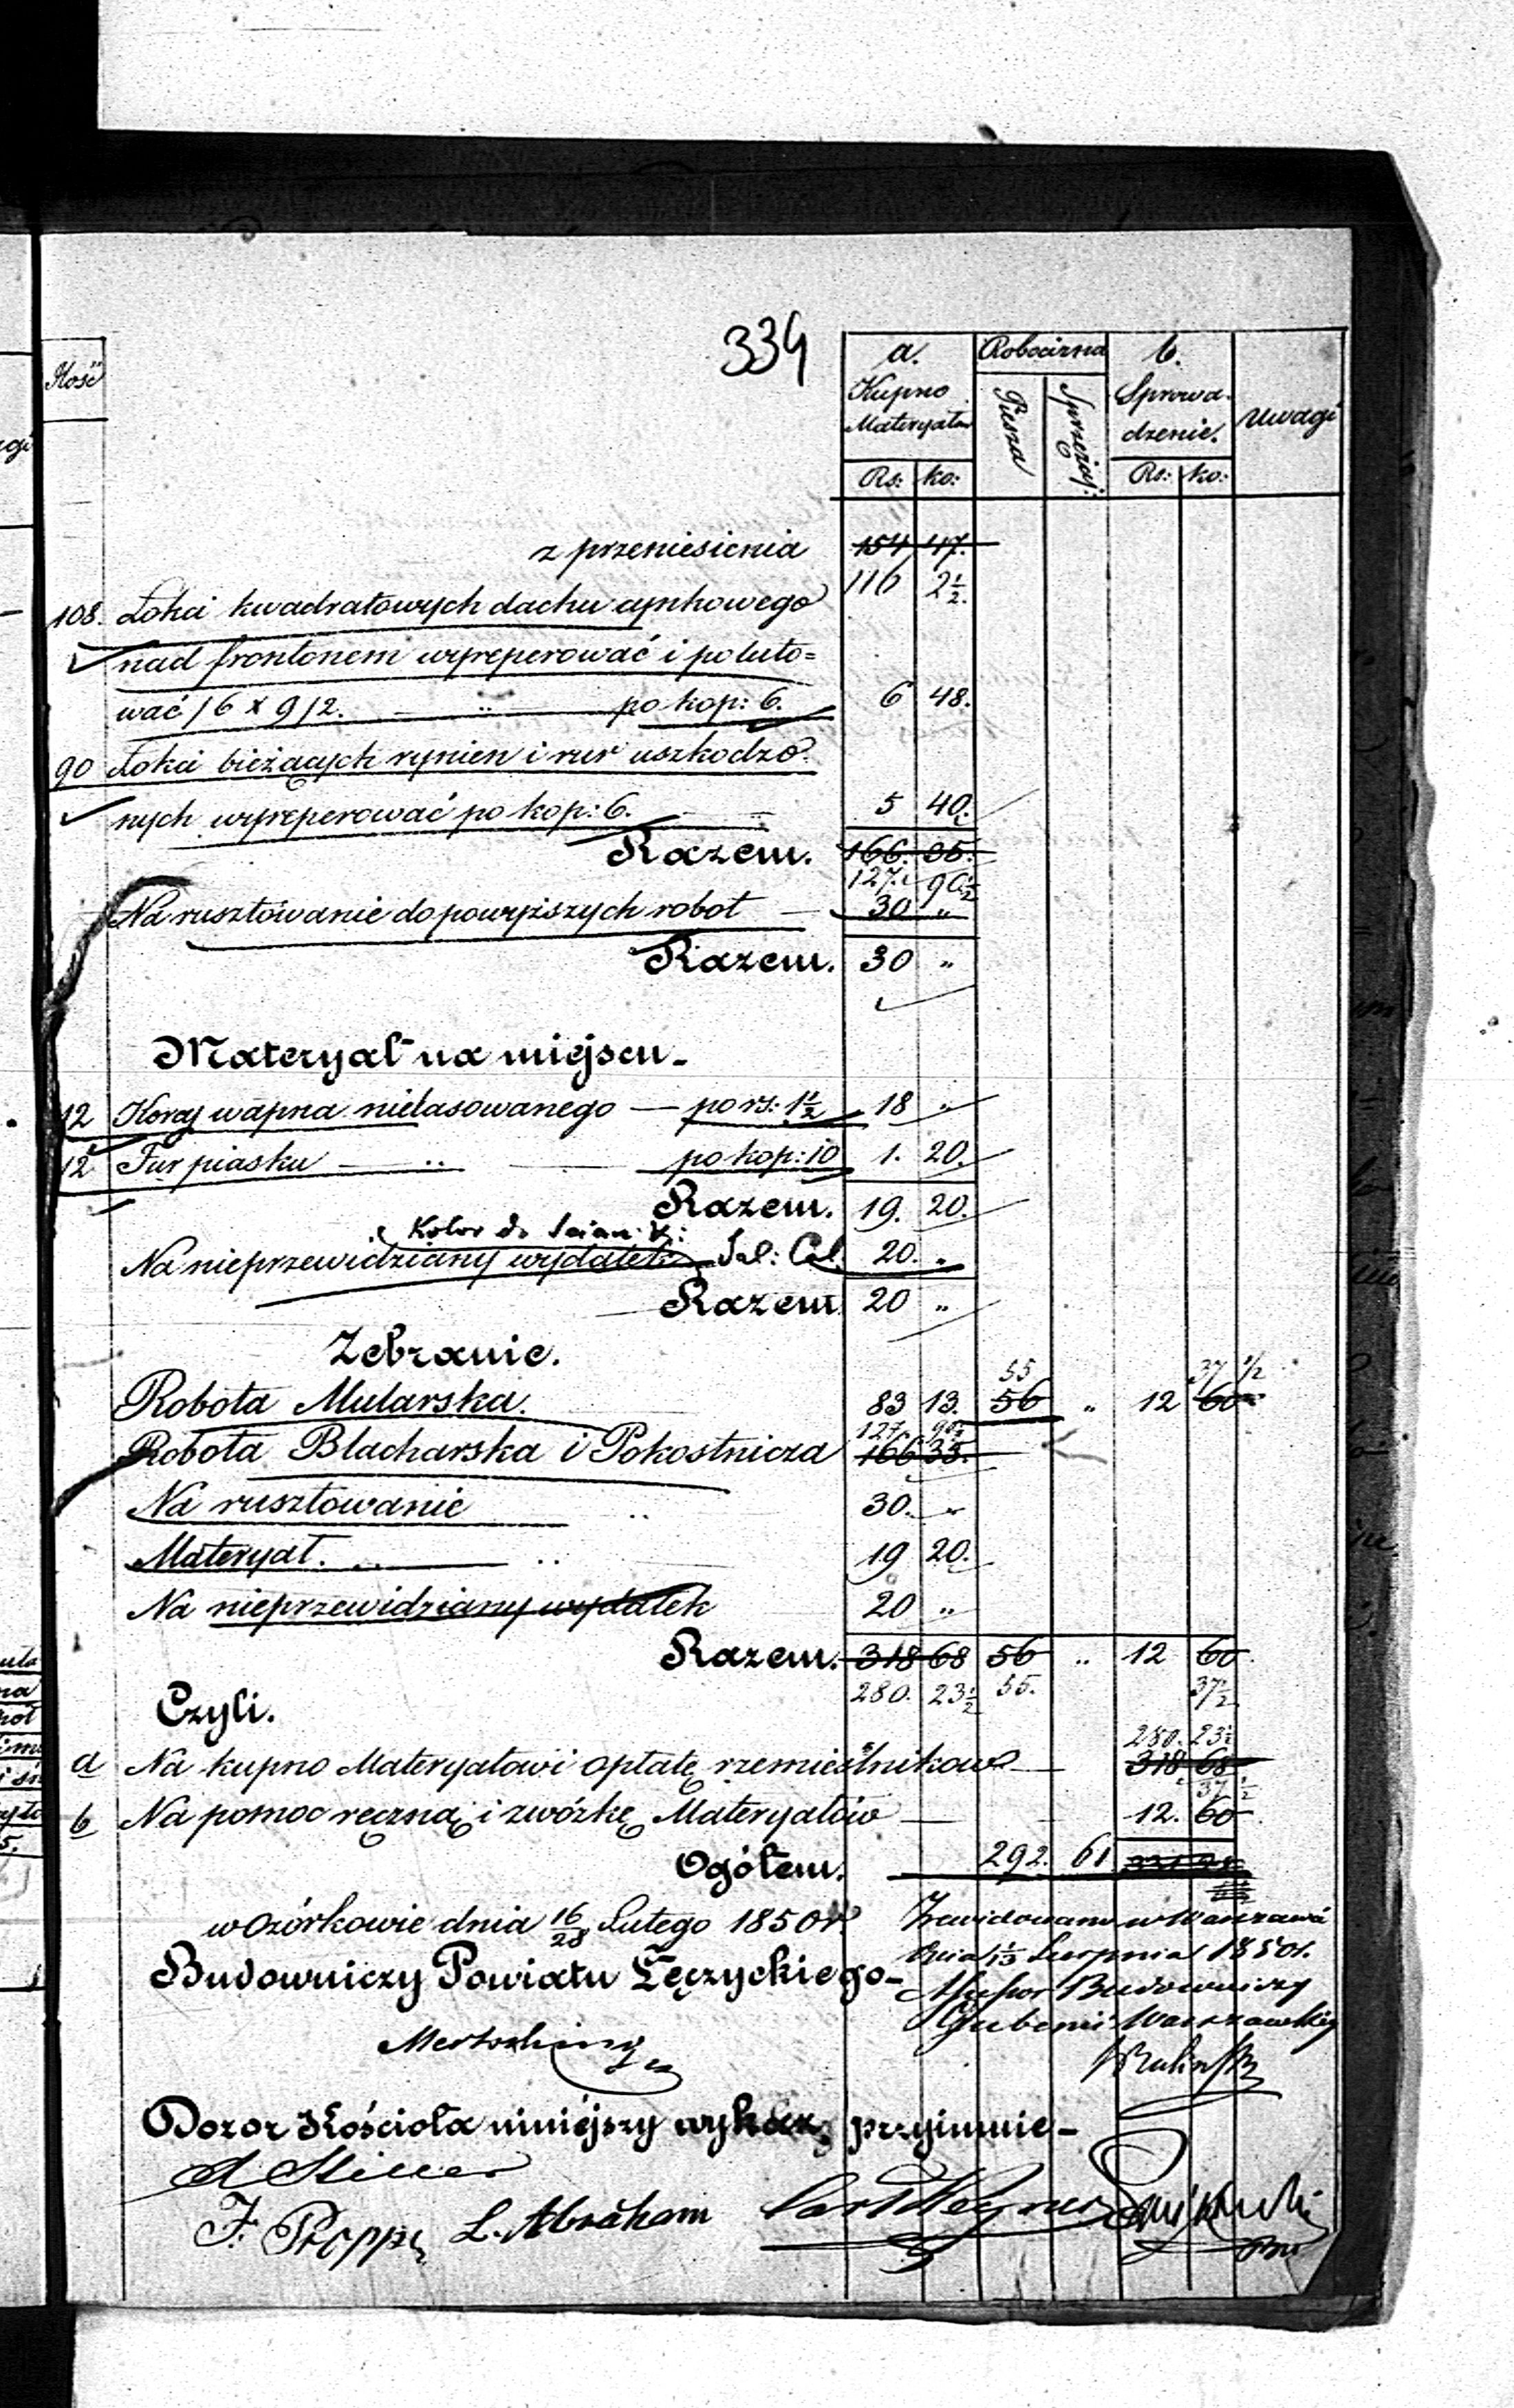 334
Ilość
a.
Kupno
Materyałów
Robocizna
Piesza
Sprzężaj:
b.
Sprowa-
dzenie.
Uwagi
Rs: ko: Rs: ko:
z przeniesienia 154 47.
116 2½.
108. Łokci kwadratowych dachu cynkowego
nad frontonem wyreperować i poluto=
wać /6 x 9/2. — „ — po kop: 6. 6 48.
90 Łokci bieżących rynien i rur uszkodzo-
nych wyreperować po kop: 6. — „ 5 40.
Razem. 166. 35.
127. 90½
Na rusztowanie do powyższych robot — 30 „
Razem. 30 „
Materyał na miejscu -
12 Korcy wapna nielasowanego — po rs: 1½ 18 „
12 Fur piasku — „ — po kop: 10 1. 20.
Razem. 19. 20.
Kolor do
Na nieprzewidziany wydatek 20. „
Razem 20 „
Zebranie.
55 37 ½
Robota Mularska. 83 13. 56 „ 12 60
127. 90½
Robota Blacharska i Pokostnicza 166 35.
Na rusztowanie „ 30. „
Materyał. — „ 19 20.
Na nieprzewidziany wydatek 20 „
Razem. 318 68 56 „ 12 60
280. 23½ 55. 37½
Czyli.
280. 23½
a Na kupno Materyałów i opłatę rzemieślników — 318 68
37 ½
b Na pomoc ręczną i zwózkę Materyałów — 12. 60
Ogółem. 292. 61 331 28
w Ozórkowie dnia 16/28 Lutego 1850 r.
Budowniczy Powiatu Łęczyckiego -
Zrewidowano w Warszawie
dnia 1/13 Sierpnia 1850 r.
Budowniczy
Gubernii Warszawskiej
Dozor Kościoła niniejszy wykaz przyjmuje -
L. Abraham